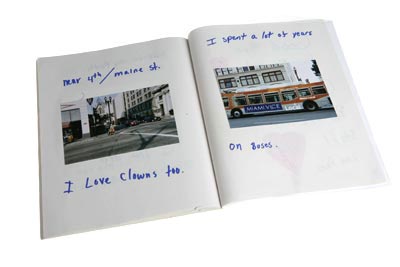 near 4th/maine st.
I Love Clowns too.
I spent a lot of years
MIAMI VICE
on Buses.